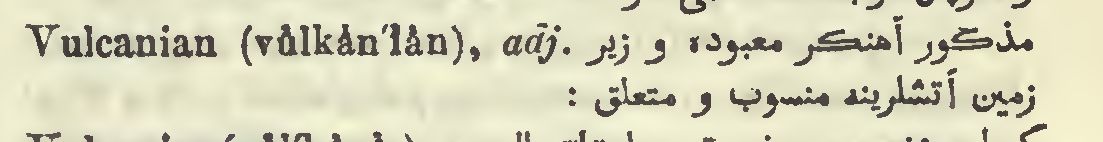 Vulcanian (vůlkån'ïån), adj. مذكور آهنكر معبوده و زير
زمين آتشلرينه منسوب و متعلق :